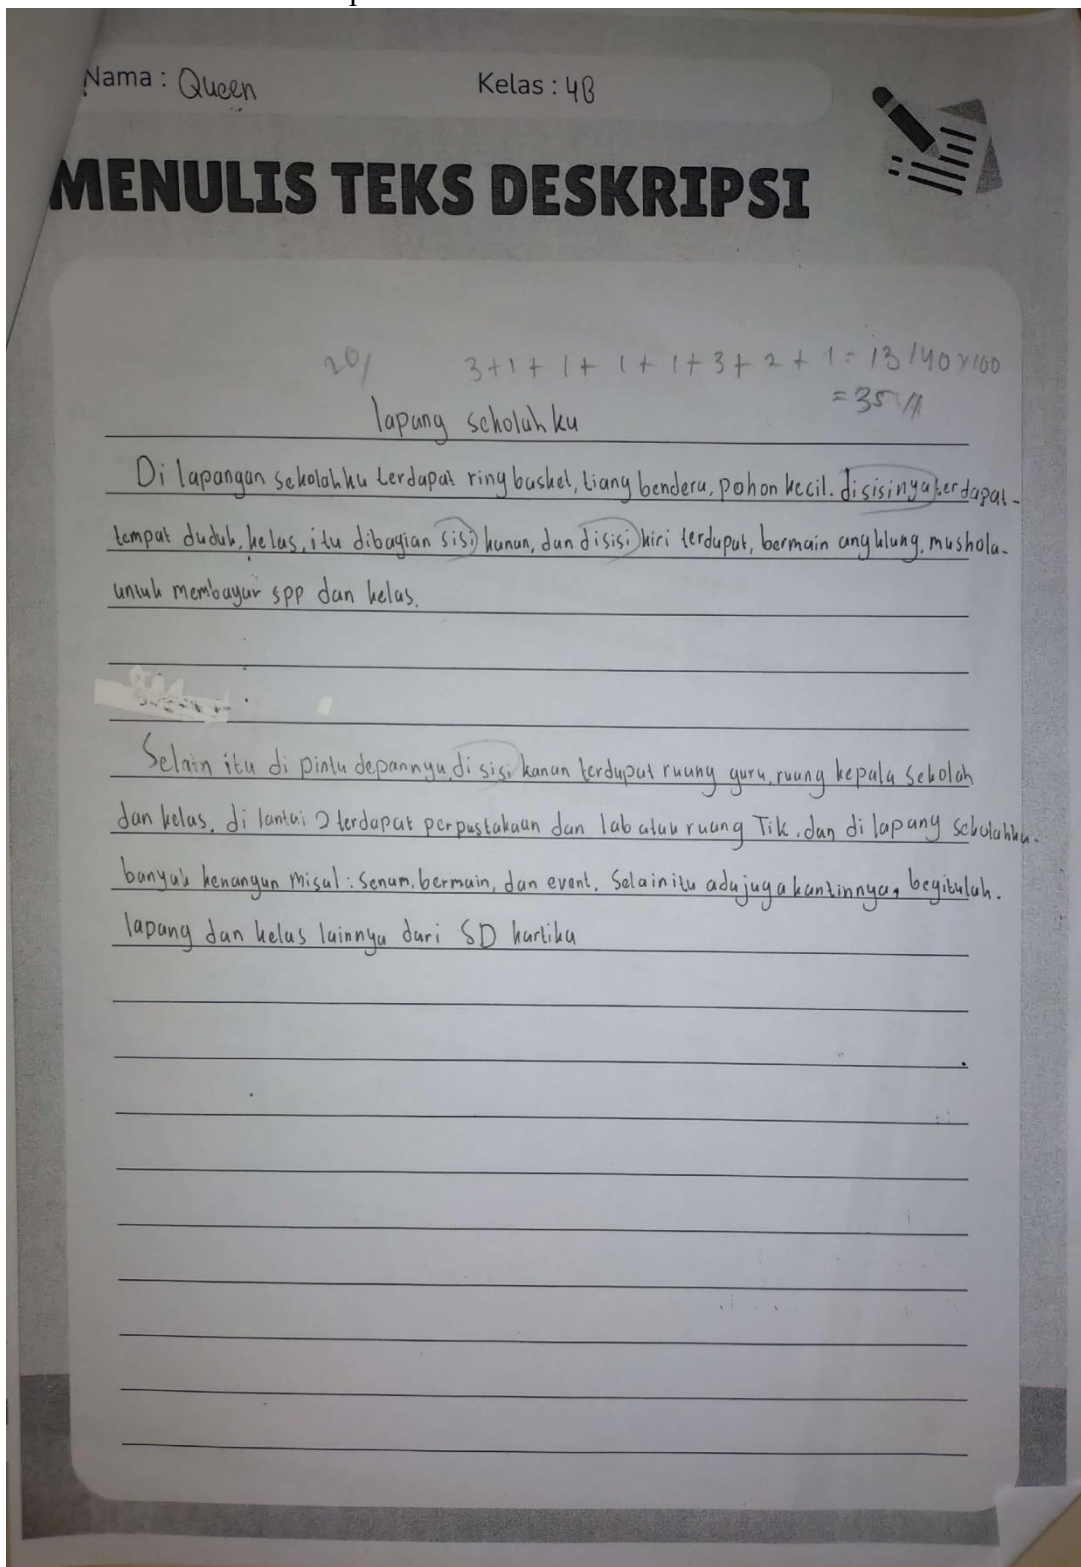 Nama : Queen Kelas : 4B
MENULIS TEKS DESKRIPSI
20/ 3+1+1+1+1+3+2+1= 13/40x100
= 35 //
lapang scholahku
Di lapangan sekolahku terdapat ring basket, tiang bendera, pohon kecil. disisinya terdapat-
tempat duduk, kelas, itu dibagian sisi kanan, dan disisi kiri terdapat, bermain angklung, mushola.
untuk membayar spp dan kelas.
Selain itu di pintu depannya, di sisi kanan terdapat ruang guru, ruang kepala sekolah
dan kelas, di lantai 2 terdapat perpustakaan dan lab atau ruang Tik. dan di lapang sekolahku.
banyak kenangan misal : senam, bermain, dan event, Selain itu ada juga kantinnya, begitulah.
lapang dan kelas lainnya dari SD kartika